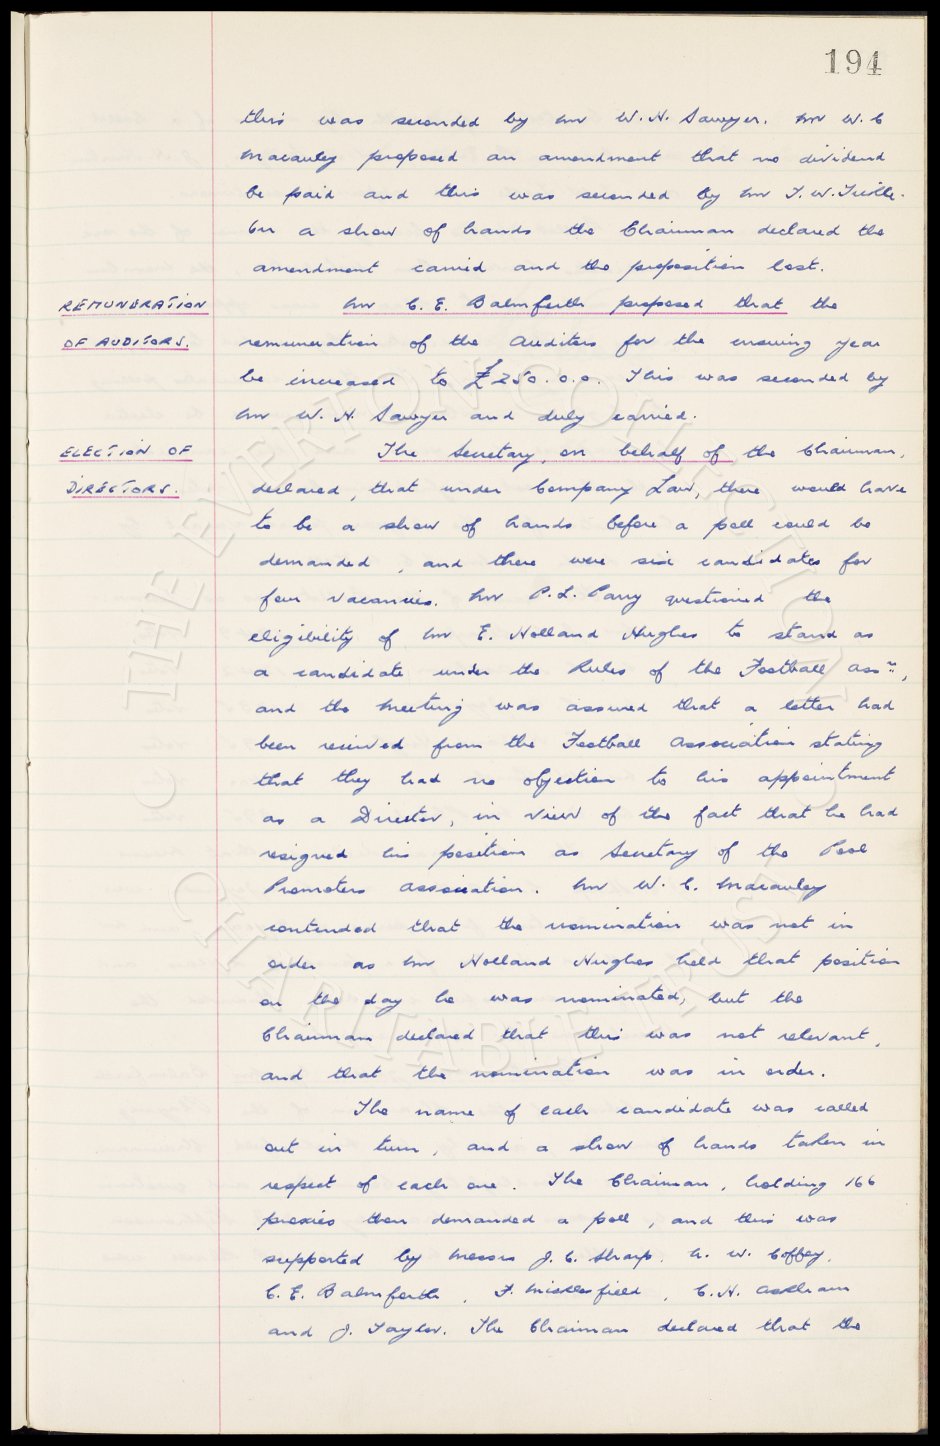 194
this was seconded by Mr W. H. Sawyer. Mr W. C
Macauley proposed an amendment that no dividend
be paid and this was seconded by Mr T. W.
On a show of hands the Chairman declared the
amendment carried and the proposition lost.
REMUNERATION Mr C. E. Balmforth proposed that the
OF AUDITORS. remuneration of the Auditors for the ensuing year
be increased to £250.0.0. This was seconded by
Mr W. H. Sawyer and duly carried.
ELECTION OF The Secretary, on behalf of the Chairman,
DIRECTORS. declared, that under Company Law, there would have
to be a show of hands before a poll could be
demanded, and there were six candidates for
four vacancies. Mr P. L. Parry questioned the
eligibility of Mr E. Holland Hughes to stand as
a candidate under the Rules of the Football Assn.,
and the Meeting was assured that a letter had
been received from the Football Association stating
that they had no objection to his appointment
as a Director, in view of the fact that he had
resigned his position as Secretary of the Pool
Promoters Association. Mr W. C. Macauley
contended that the nomination was not in
order as Mr Holland Hughes held that position
on the day he was nominated, but the
Chairman declared that this was not relevant,
and that the nomination was in order.
The name of each candidate was called
out in turn, and a show of hands taken in
respect of each one. The Chairman, holding 166
proxies then demanded a poll, and this was
supported by Messrs J. C. Sharp, A. W. Coffey,
C. E. Balmforth, F. Micklesfield, C. H. Askham
and J. Taylor. The Chairman declared that the
© THE EVERTON COLLECTION
CHARITABLE TRUST